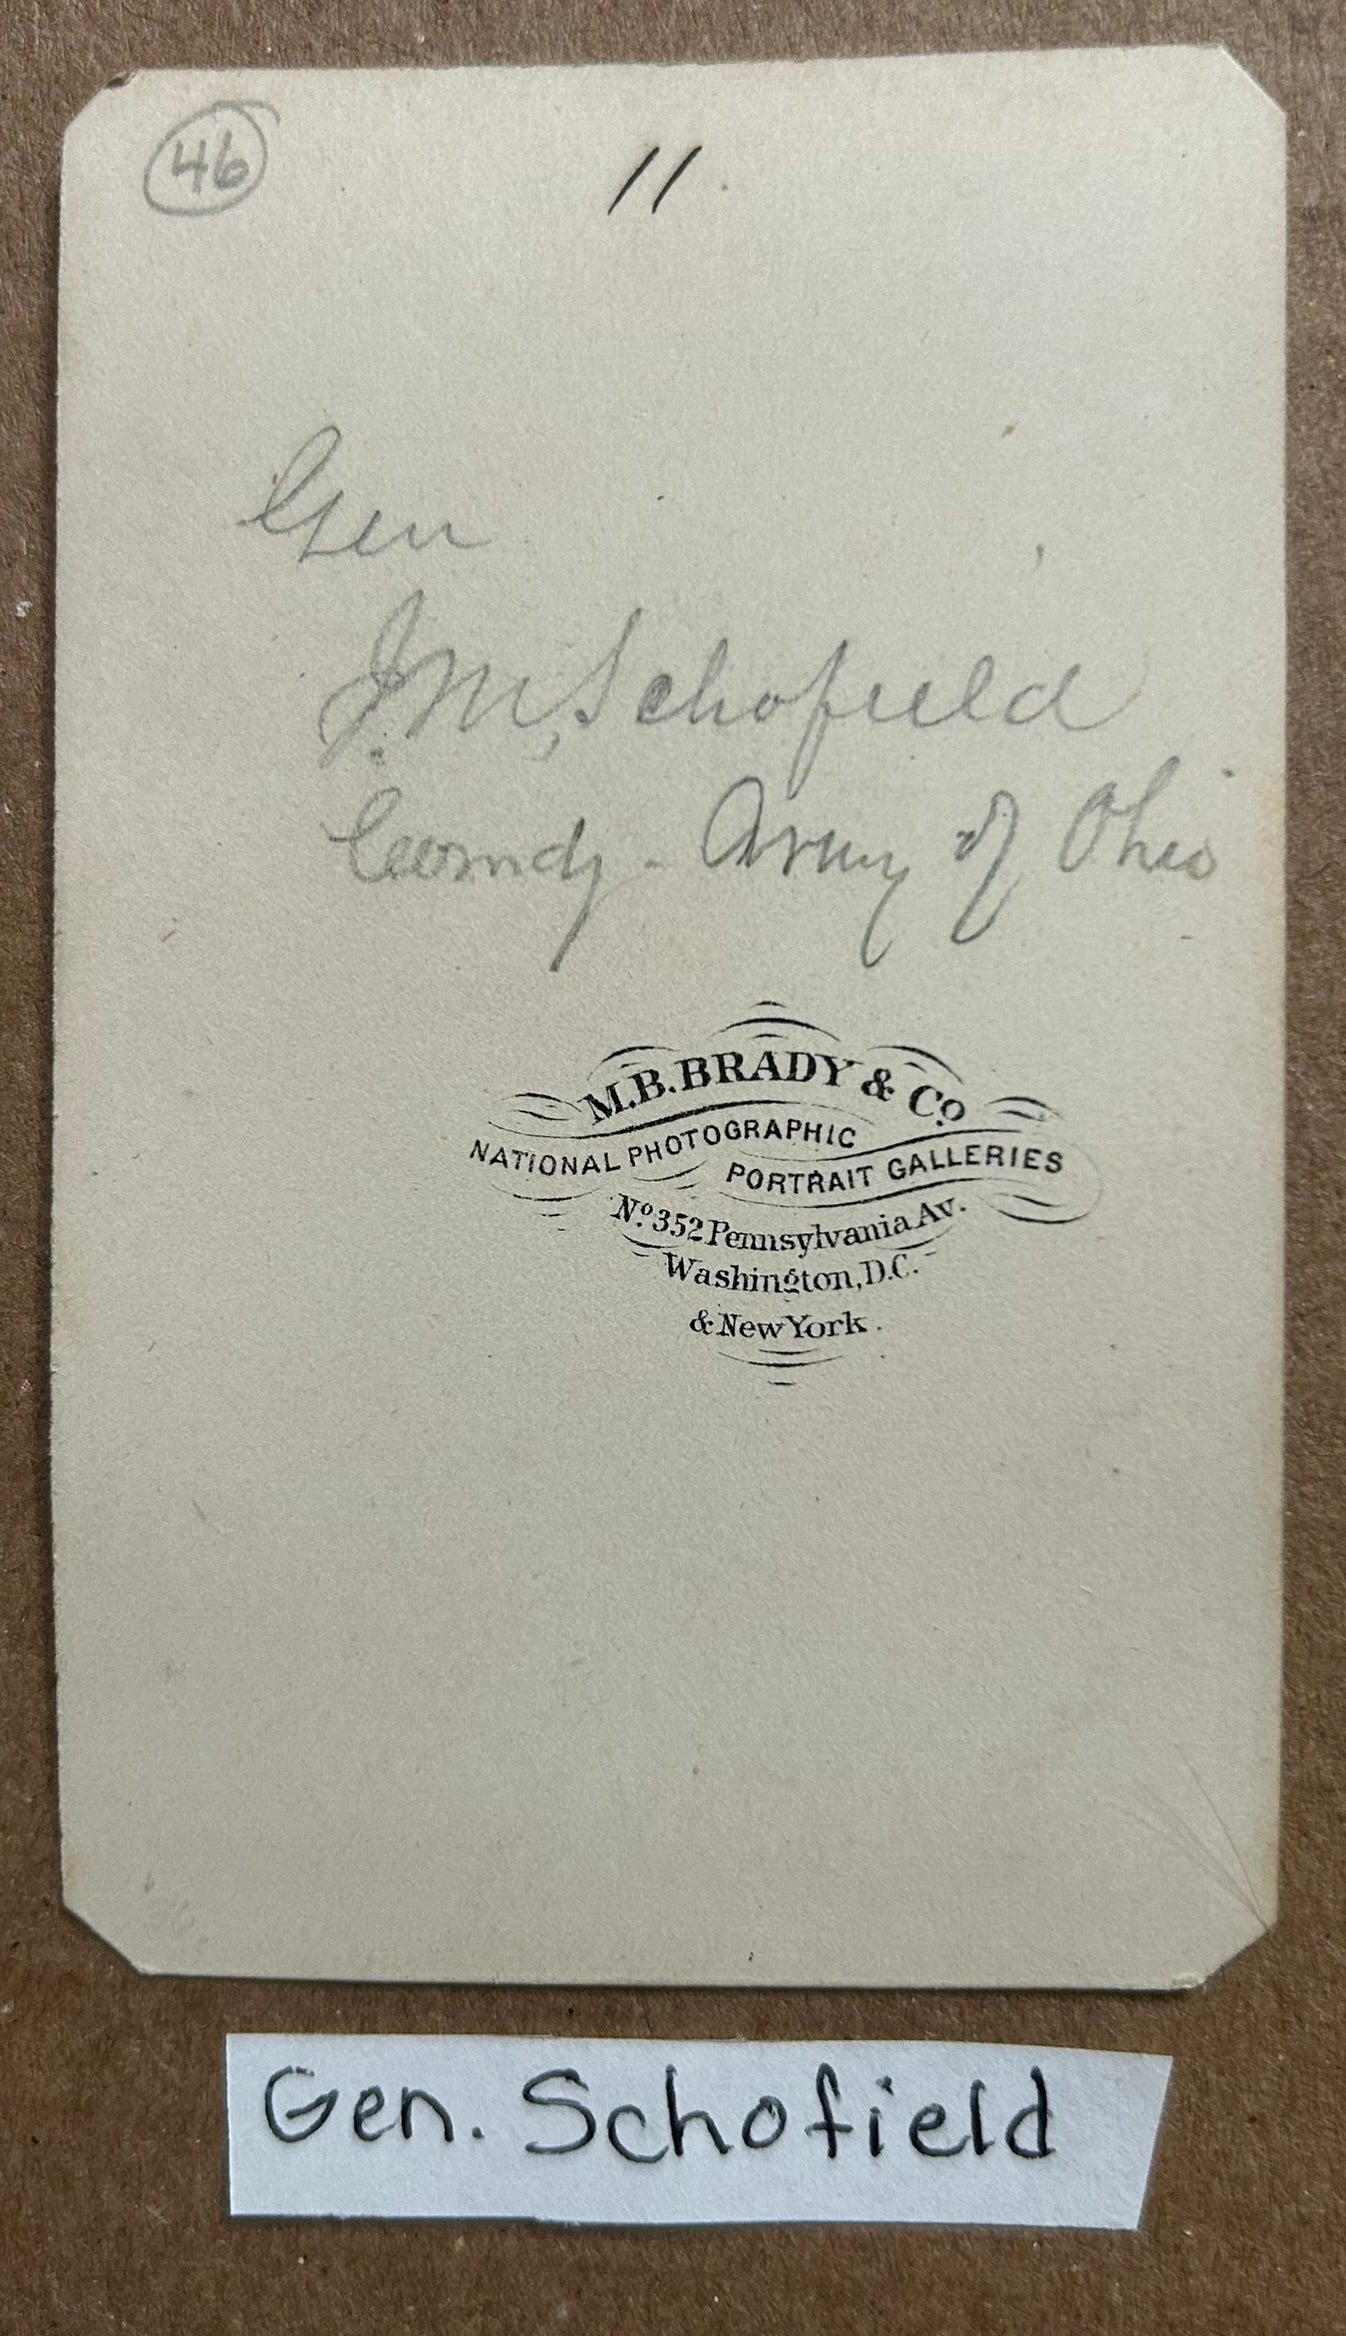 46
11
Gen
J. M. Schofield
Comdg - Army of Ohio
M.B. BRADY & Co.
NATIONAL PHOTOGRAPHIC
PORTRAIT GALLERIES
No. 352 Pennsylvania Av.
Washington, D.C.
& New York.
Gen. Schofield